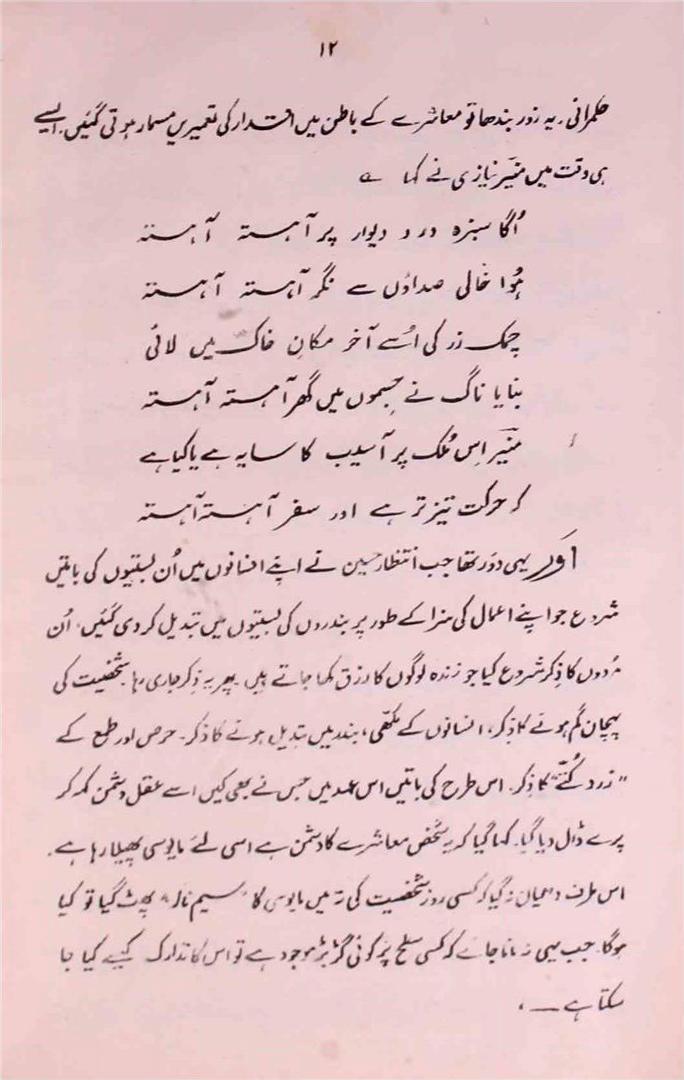 ۱۲
حکمرانی۔ یہ زور بندھا تو معاشرے کے باطن میں اقتدار کی تعمیریں مسمار ہوتی گئیں۔ ایسے
ہی وقت میں منیر نیازی نے کہا ے
اُگا سبزہ در و دیوار پر آہستہ آہستہ
ہُوا خالی صداؤں سے نگر آہستہ آہستہ
چمک زر کی اُسے آخر مکانِ خاک میں لائی
بنایا ناگ نے جسموں میں گھر آہستہ آہستہ
منیر اِس مُلک پر آسیب کا سایہ ہے یا کیا ہے
کہ حرکت تیز تر ہے اور سفر آہستہ آہستہ
اور یہی دَور تھا جب انتظار حسین نے اپنے افسانوں میں اُن بستیوں کی باتیں
شروع جو اپنے اعمال کی سزا کے طور پر بندروں کی بستیوں میں تبدیل کر دی گئیں، اُن
مُردوں کا ذِکر شروع کیا جو زندہ لوگوں کا رزق کھا جاتے ہیں۔ پھر یہ ذِکر جاری رہا۔ شخصیت کی
پہچان گم ہونے کا ذِکر، انسانوں کے مکھی، بندر میں تبدیل ہونے کا ذکر۔ حرص اور طمع کے
"زرد کُتّے" کا ذِکر۔ اس طرح کی باتیں اس عہد میں جس نے بھی کیں اسے عقل دشمن کہہ کر
پرے ڈال دیا گیا۔ کہا گیا کہ یہ شخص معاشرے کا دشمن ہے اسی لئے مایوسی پھیلا رہا ہے۔
اس طرف دھیان نہ گیا کہ کسی روز شخصیت کی تہ میں مایوسی کا "سیم نالہ" پھٹ گیا تو کیا
ہوگا۔ جب یہی نہ مانا جائے کہ کسی سطح پر کوئی گڑبڑ موجود ہے تو اس کا تدارک کیسے کیا جا
سکتا ہے ــ ،